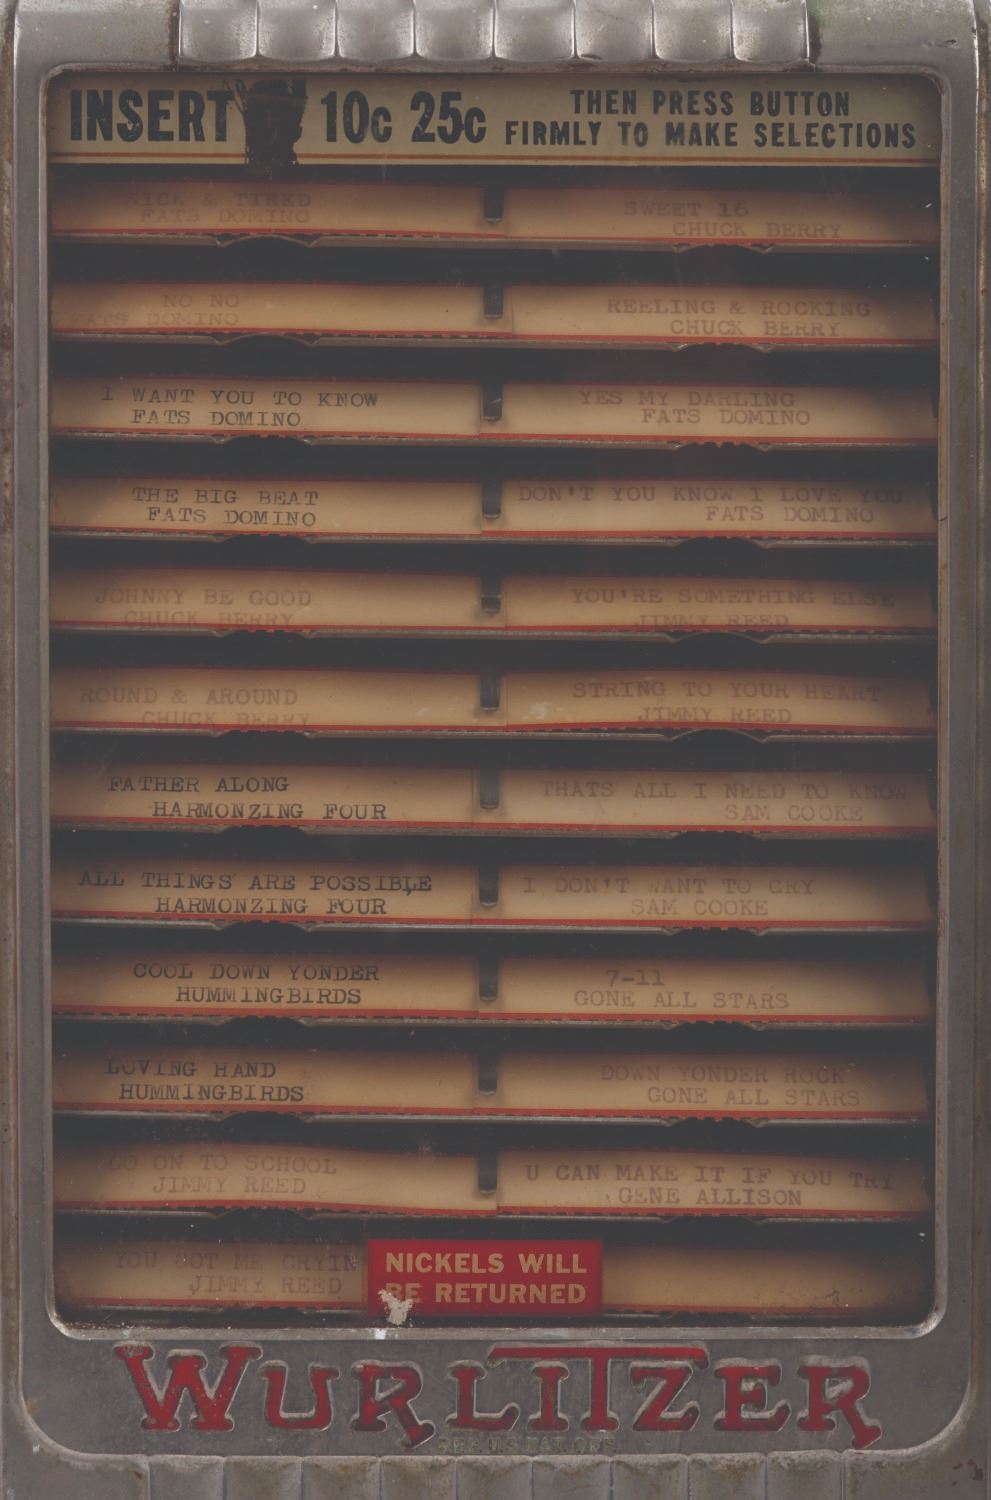 INSERT 10c 25c
THEN PRESS BUTTON
FIRMLY TO MAKE SELECTIONS
SICK & TIRED
FATS DOMINO
SWEET 16
CHUCK BERRY
NO NO
FATS DOMINO
REELING & ROCKING
CHUCK BERRY
I WANT YOU TO KNOW
FATS DOMINO
YES MY DARLING
FATS DOMINO
THE BIG BEAT
FATS DOMINO
DON'T YOU KNOW I LOVE YOU
FATS DOMINO
JOHNNY BE GOOD
CHUCK BERRY
YOU'RE SOMETHING ELSE
JIMMY REED
ROUND & AROUND
CHUCK BERRY
STRING TO YOUR HEART
JIMMY REED
FATHER ALONG
HARMONZING FOUR
THATS ALL I NEED TO KNOW
SAM COOKE
ALL THINGS ARE POSSIBLE
HARMONZING FOUR
I DON'T WANT TO CRY
SAM COOKE
COOL DOWN YONDER
HUMMINGBIRDS
7-11
GONE ALL STARS
LOVING HAND
HUMMINGBIRDS
DOWN YONDER ROCK
GONE ALL STARS
GO ON TO SCHOOL
JIMMY REED
U CAN MAKE IT IF YOU TRY
GENE ALLISON
YOU GOT ME CRYIN
JIMMY REED
NICKELS WILL
BE RETURNED
WURLITZER
REG. U.S. PAT. OFF.